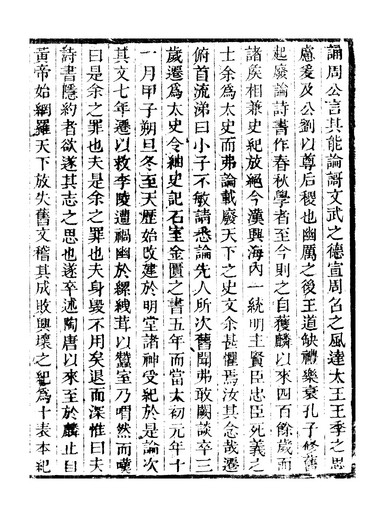 誦周公言其能論謌文武之德宣周召之風達太王王季之思
慮爰及公劉以尊后稷也幽厲之後王道缺禮樂衰孔子修舊
起廢論詩書作春秋學者至今則之自獲麟以來四百餘歲而
諸矦相兼史紀放絕今漢興海內一統明主賢臣忠臣死義之
士余爲太史而弗論載廢天下之史文余甚懼焉汝其念哉遷
俯首流涕曰小子不敏請悉論先人所次舊聞弗敢闕談卒三
歲遷爲太史令紬史記石室金匱之書五年而當太初元年十
一月甲子朔旦冬至天歷始改建於明堂諸神受紀於是論次
其文七年遷以救李陵遭禍幽於縲絏茸以蠶室乃喟然而嘆
曰是余之罪也夫是余之罪也夫身毀不用矣退而深惟曰夫
詩書隱約者欲遂其志之思也遂卒述陶唐以來至於麟止自
黃帝始網羅天下放失舊文稽其成敗興壞之紀爲十表本紀